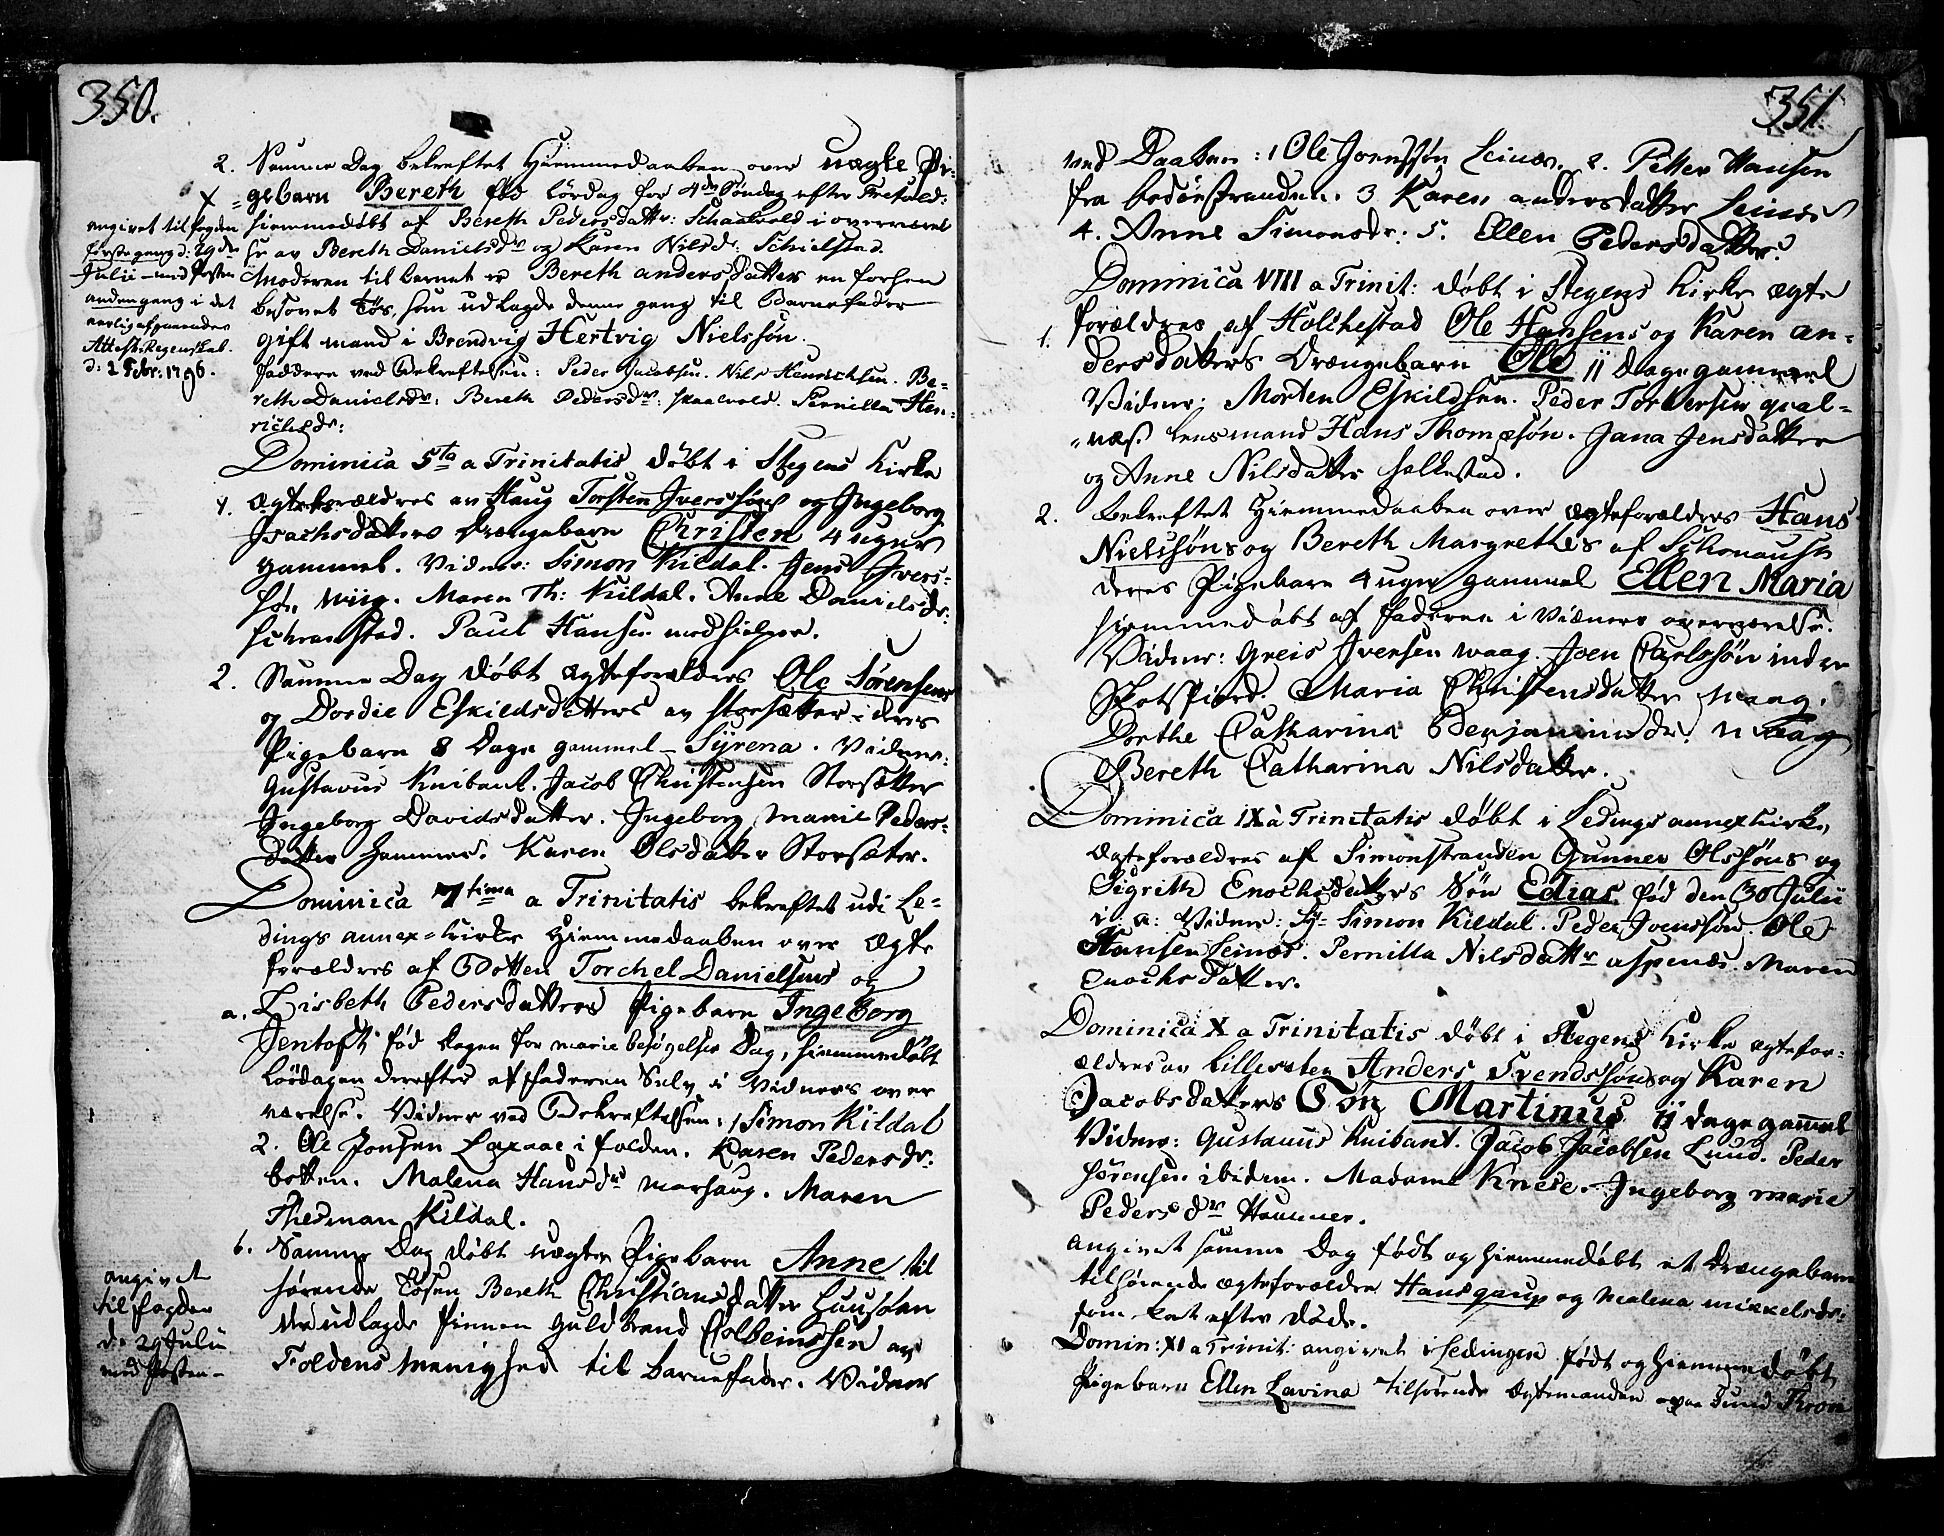 350.
2. Samme Dag bekreftet Hiemmedaaben over uægte Pi-
gebarn Bereth fød Lördag for 4de Söndag efter Trefold:
hiemmedøbt af Bereth Pedersdattr: Schaalvold i overværel
se av Bereth Danielsdr og Karen Nilsdr: Schielstad.
Moderen til barnet er Bereth andersdatter en forhen
besovet Tøs, som udlagde denne gang til Barnefader
gift mand i Brendvig Hertvig Nielssøn.
faddere ved Bekreftelsen: Peder Jacobsen. Nils Henrichsen. Be-
reth Danielsdr: Bereth Pedersdr: skaalvold. Pernilla Hen-
richsdr:
angivet til fogden
første gang d: 29de
Julii med Posten
anden gang i det
aarlig afgaaende
Attest Regenskab.
d: 2 Febr: 1796.
Dominica 5ta a Trinitatis døbt i Stegens Kirke
1. Ægteforældres av Haug Torsten Iverssøns og Ingeborg
Isachsdatters Drængebarn Christen 4 uger
gammel. Vidner: Simon Kildal. Jens Ivers-
søn wiig. Maren Th: Kildal. Anne Danielsdr:
schranstad. Paul Hansen medhielper.
2. Samme Dag døbt Ægteforældres Ole Sørensens
og Dordie Eskildsdatters av storsætter deres
Pigebarn 8 Dage gammel Syrena. Vidner:
Gustavus Knibant. Jacob Christensen Storsætter
Ingeborg Davidsdatter. Ingeborg marie Peders-
datter Hammer. Karen Olsdatter Storsæter.
Dominica 7tima a Trinitatis bekreftet udi Le-
dings annex-kirke Hiemmedaaben over Ægte
forældres af Botten Torchel Danielsens og
a. Lisbeth Pedersdatters Pigebarn Ingeborg
Jentoft fød dagen for mariæ besøgelses Dag, hiemmedøbt
Löördagen derefter af faderen Selv i Vidners over
værelse. Vidner ved Bekreftelsen: 1 Simon Kildal
2. Ole Jonsen Laxaae i folden. Karen Pedersdr:
botten. Malena Hansdr marhaug. Maren
Thesman Kildal.
b. Samme Dag døbt uægte Pigebarn Anne til
hørende Tøsen Bereth Christiansdatter
der udlagde Finnen Guldbrand Colbeinssen av
Foldens menighed til barnefader. Vidner
angivet
til fogden
d: 29 Julii
med Posten
351
ved Daaben: 1 Ole Joenssøn Leines. 2. Petter Hansen
fra bodöestranden. 3 Karen andersdatter Leines
4. Anne Simonsdr: 5. Ellen Pedersdatter.
Dominica VIII a Trinit: døbt i Stegens Kirke ægte
1. forældres af Holckestad Ole Hansens og Karen an-
dersdatters Drængebarn Ole 11 Dage gammel
Vidner: Morten Eskildsen. Peder Torbersen qval-
næs. lensmand Hans Thomæsøn. Jana Jensdatter
og Anne Nilsdatter holkestad.
2. bekreftet Hiemmedaaben over ægteforældres Hans
Nielssøns og Bereth Margrethes af
deres Pigebarn 4 uger gammel Ellen Maria
hiemmedøbt af faderen i Vidners overværelse.
Vidner: Greis Iversen waag. Joen Carlssön indre
Skotsfiord. Maria Christensdatter waag.
Dorthe Catharina Benjaminsdr. waag
Bereth Catharina Nilsdatter.
Dominica IX à Trinitatis døbt i Ledings annexkirke,
Ægteforældres af Simonstranden Gunner Olssøns og
Sigrith Enochsdatters Søn Edias fød den 30 Julii
i. a: Vidner: Hr Simon Kildal. Peder Joenssøn. Ole
Hansen Leines. Pernilla Nilsdattr aspenæs. Maren
Enochs Datter.
Dominica X a Trinitatis døbt i Stegens Kirke ægtefor-
ældres av Anders Svendssøns og Karen
Jacobsdatters Søn Martinus 11 dage gammel
Vidner: Gustavus Knibant. Jacob Jacobsen Lund. Peder
Sørensen ibidem. Madame Knese. Ingeborg marie
Pedersdr Hammer.
angivet samme Dag født og hiemmedøbt et Drængebarn
tilhørende ægteforældre Hans gaup og Malena mikkelsdr:
som kort efter døde.
Domin: XI a Trinit: angivet i Ledingen født og hiemmedøbt
Pigebarn Ellen Lavina tilhørende Ægtemanden paa Sund Thron